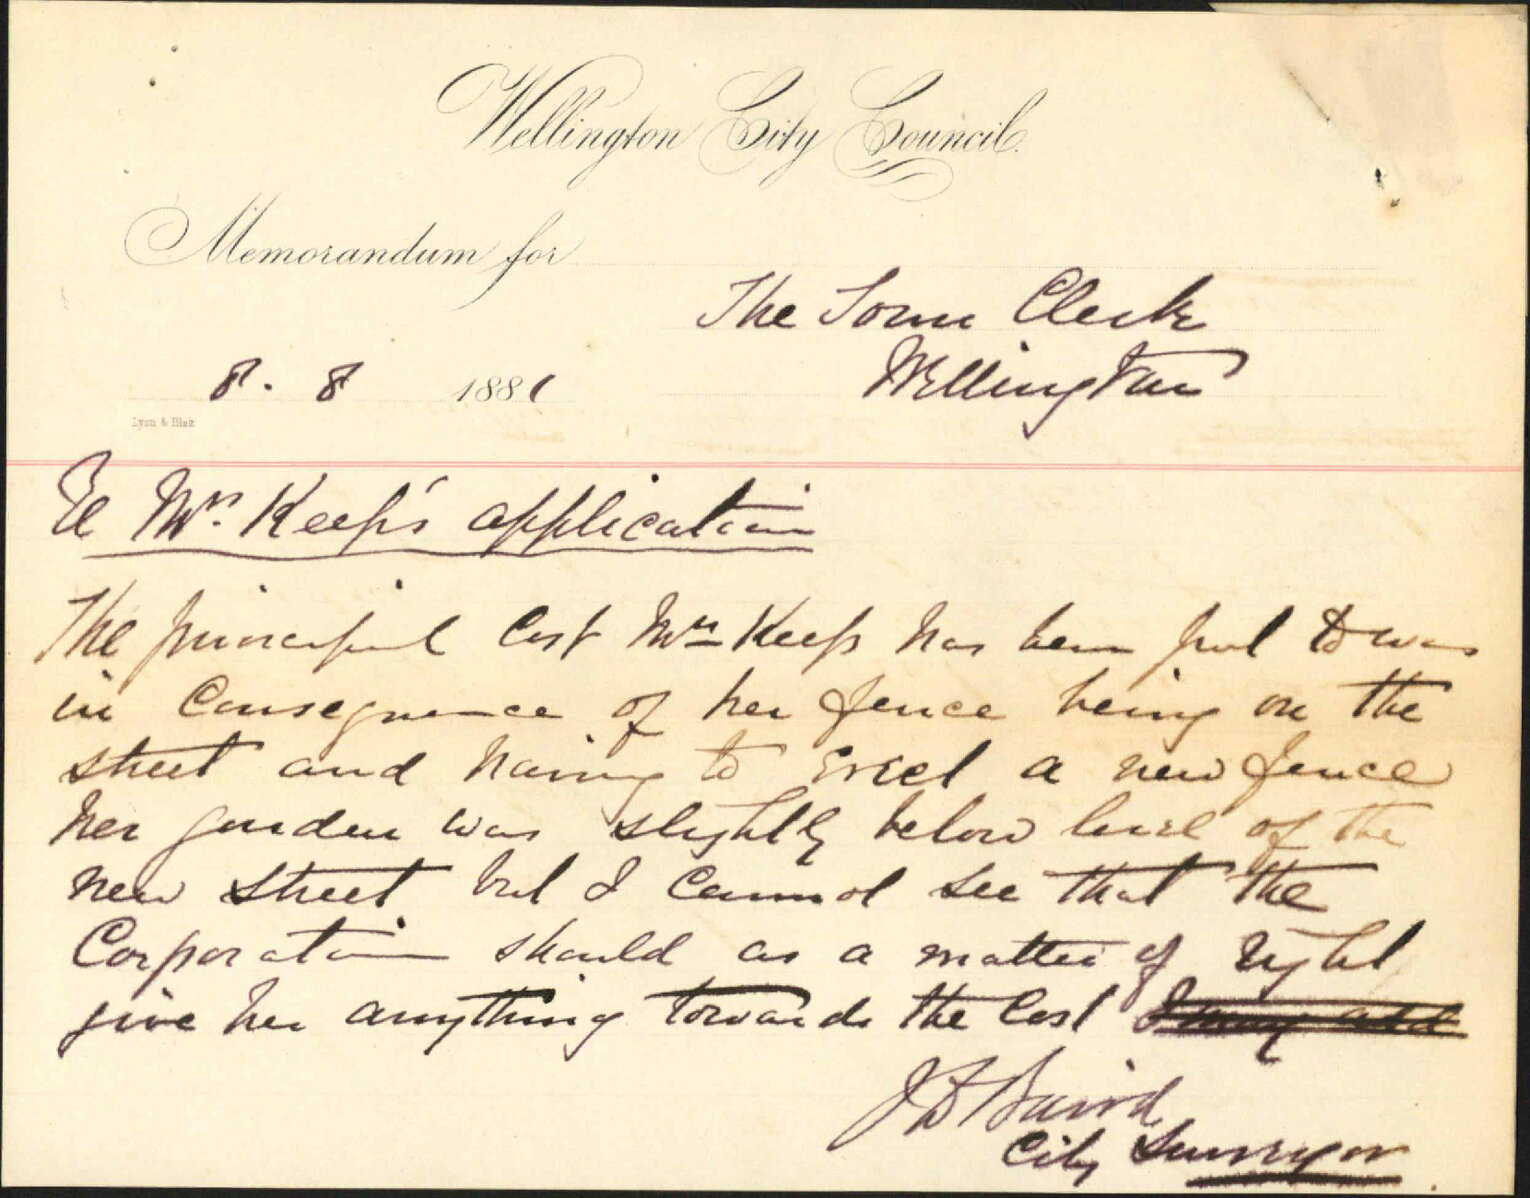 Wellington City Council.
Memorandum for
The Town Clerk
Wellington
8. 8 1881
Lyon & Blair
Re Mrs. Keep's application
The principal cost Mrs Keep has been put to was
in consequence of her fence being on the
street and having to erect a new fence
her garden was slightly below level of the
new street but I cannot see that the
Corporation should as a matter of right
give her anything towards the cost I may add
J D Baird
City Surveyor